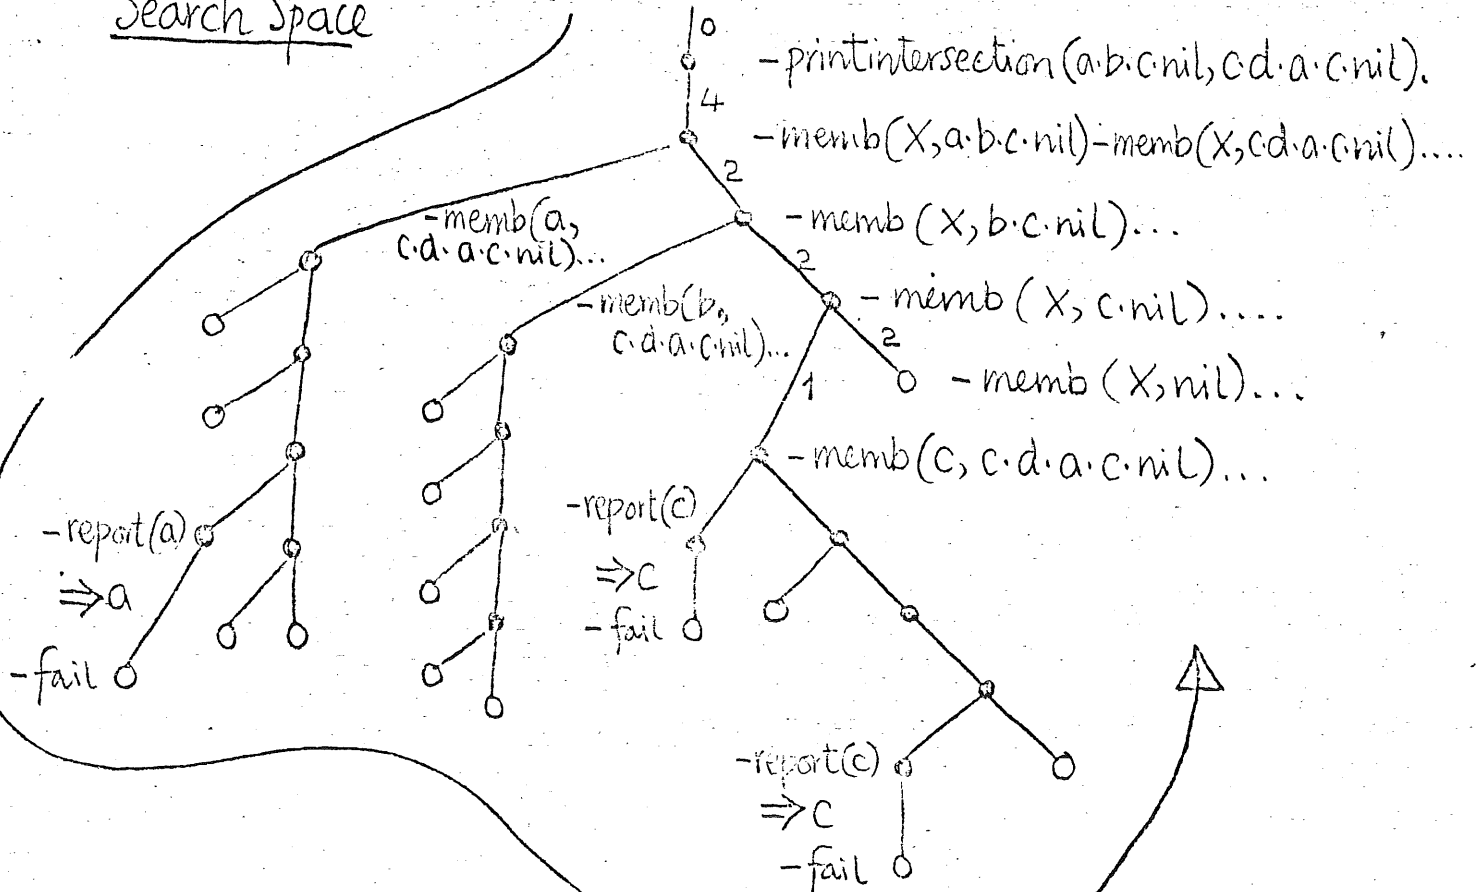 Search Space
0
-printintersection(a.b.c.nil,c.d.a.c.nil).
4
-memb(X,a.b.c.nil)-memb(X,c.d.a.c.nil)....
2
-memb(a,
c.d.a.c.nil)...
-memb(X,b.c.nil)...
2
-memb(b,
c.d.a.c.nil)...
-memb(X,c.nil)....
2
-memb(X,nil)...
1
-memb(c,c.d.a.c.nil)...
-report(a)
⇒a
-fail
-report(c)
⇒c
-fail
-report(c)
⇒c
-fail